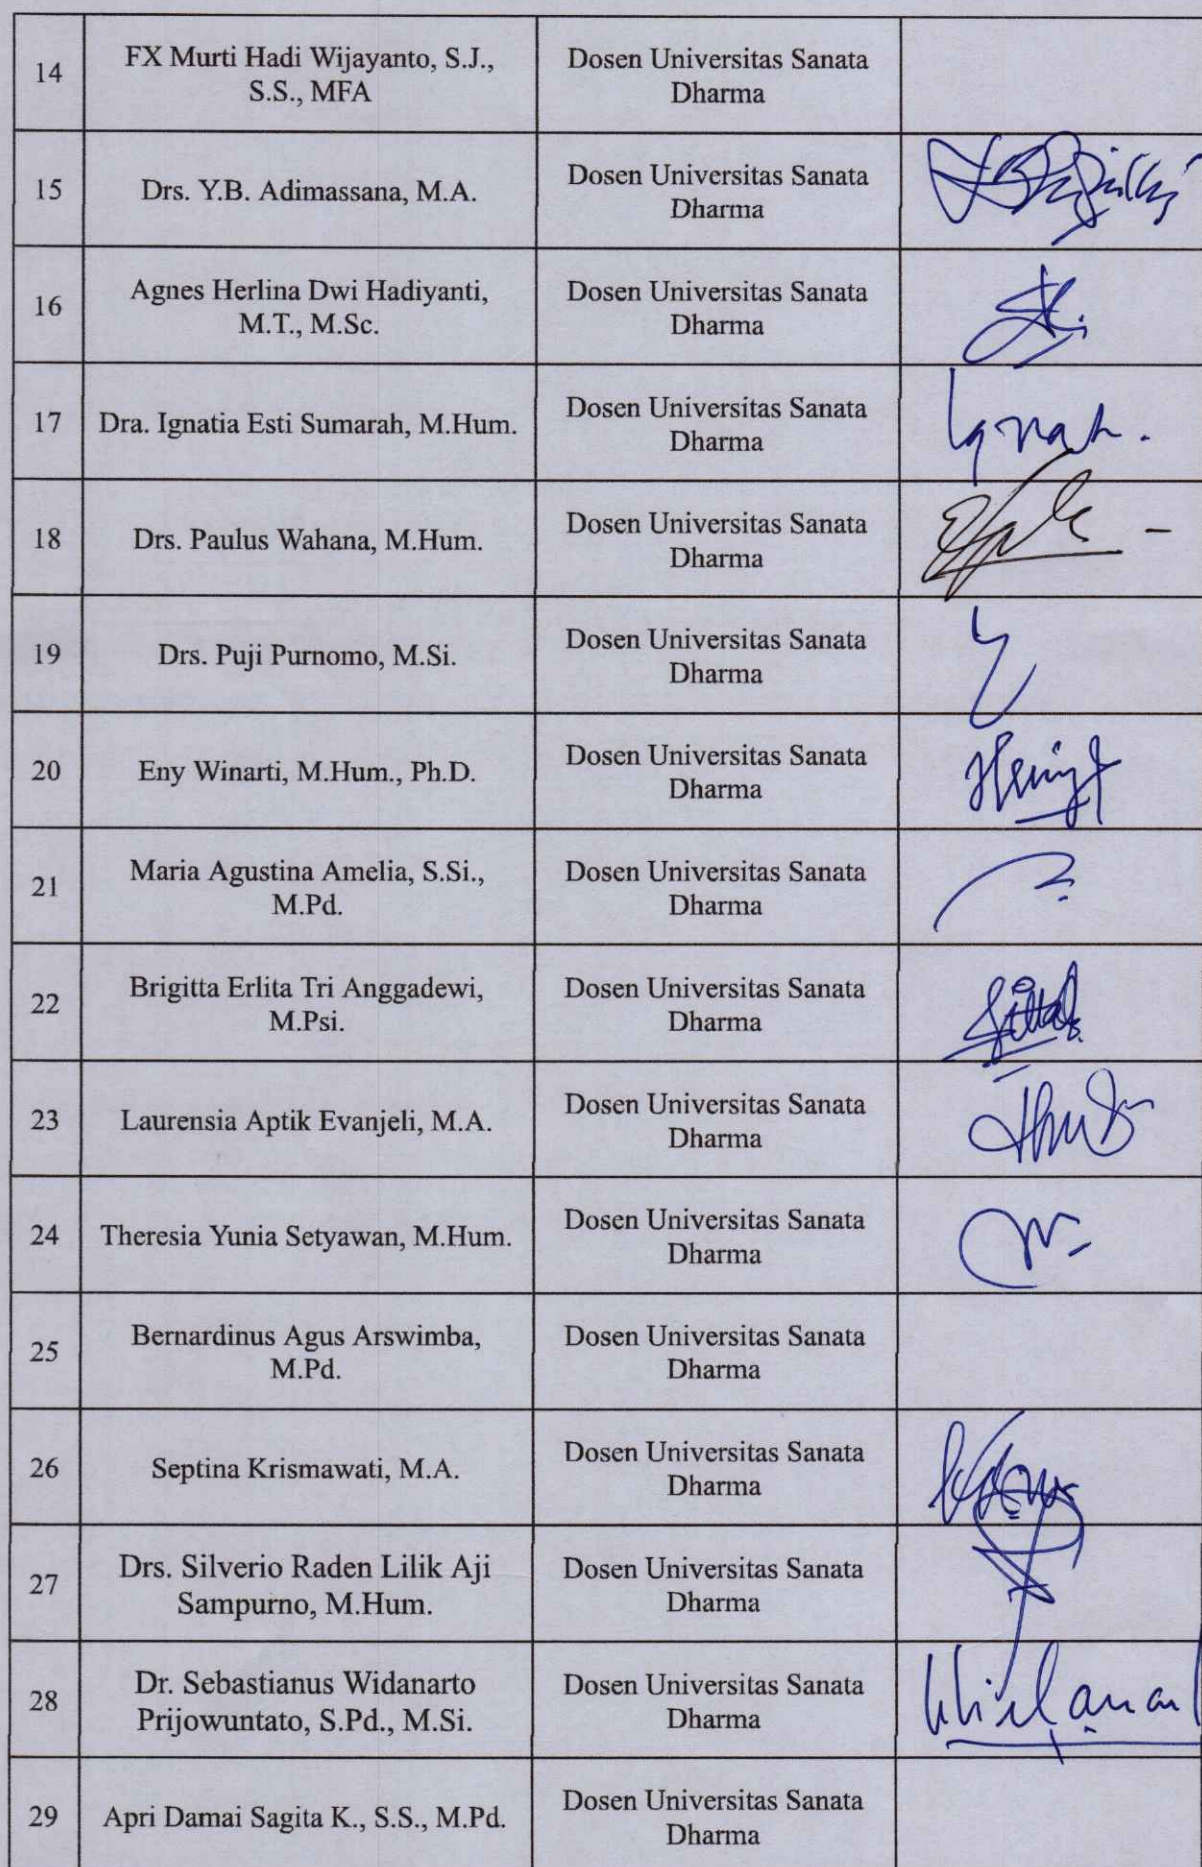 14
FX Murti Hadi Wijayanto, S.J.,
S.S., MFA
Dosen Universitas Sanata
Dharma
15
Drs. Y.B. Adimassana, M.A.
Dosen Universitas Sanata
Dharma
16
Agnes Herlina Dwi Hadiyanti,
M.T., M.Sc.
Dosen Universitas Sanata
Dharma
17
Dra. Ignatia Esti Sumarah, M.Hum.
Dosen Universitas Sanata
Dharma
18
Drs. Paulus Wahana, M.Hum.
Dosen Universitas Sanata
Dharma
19
Drs. Puji Purnomo, M.Si.
Dosen Universitas Sanata
Dharma
20
Eny Winarti, M.Hum., Ph.D.
Dosen Universitas Sanata
Dharma
21
Maria Agustina Amelia, S.Si.,
M.Pd.
Dosen Universitas Sanata
Dharma
22
Brigitta Erlita Tri Anggadewi,
M.Psi.
Dosen Universitas Sanata
Dharma
23
Laurensia Aptik Evanjeli, M.A.
Dosen Universitas Sanata
Dharma
24
Theresia Yunia Setyawan, M.Hum.
Dosen Universitas Sanata
Dharma
25
Bernardinus Agus Arswimba,
M.Pd.
Dosen Universitas Sanata
Dharma
26
Septina Krismawati, M.A.
Dosen Universitas Sanata
Dharma
27
Drs. Silverio Raden Lilik Aji
Sampurno, M.Hum.
Dosen Universitas Sanata
Dharma
28
Dr. Sebastianus Widanarto
Prijowuntato, S.Pd., M.Si.
Dosen Universitas Sanata
Dharma
29
Apri Damai Sagita K., S.S., M.Pd.
Dosen Universitas Sanata
Dharma